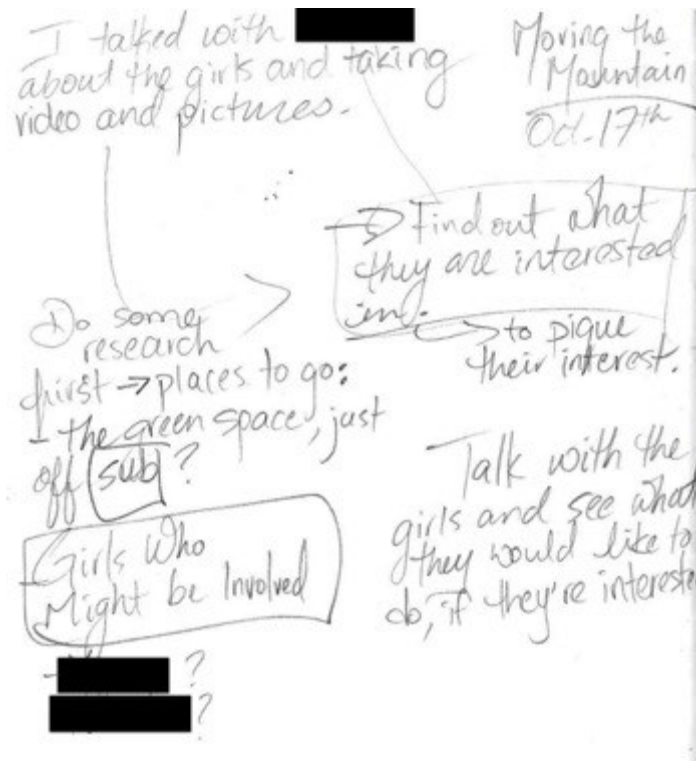 I talked with
about the girls and taking
video and pictures.
Moving the
Mountain
Oct. 17th
→ Find out what
they are interested
in.
→ to pique
their interest.
Do some
research
first → places to go:
- the green space, just
off sub?
Girls Who
Might be Involved
- ?
?
Talk with the
girls and see what
they would like to
do, if they're intereste